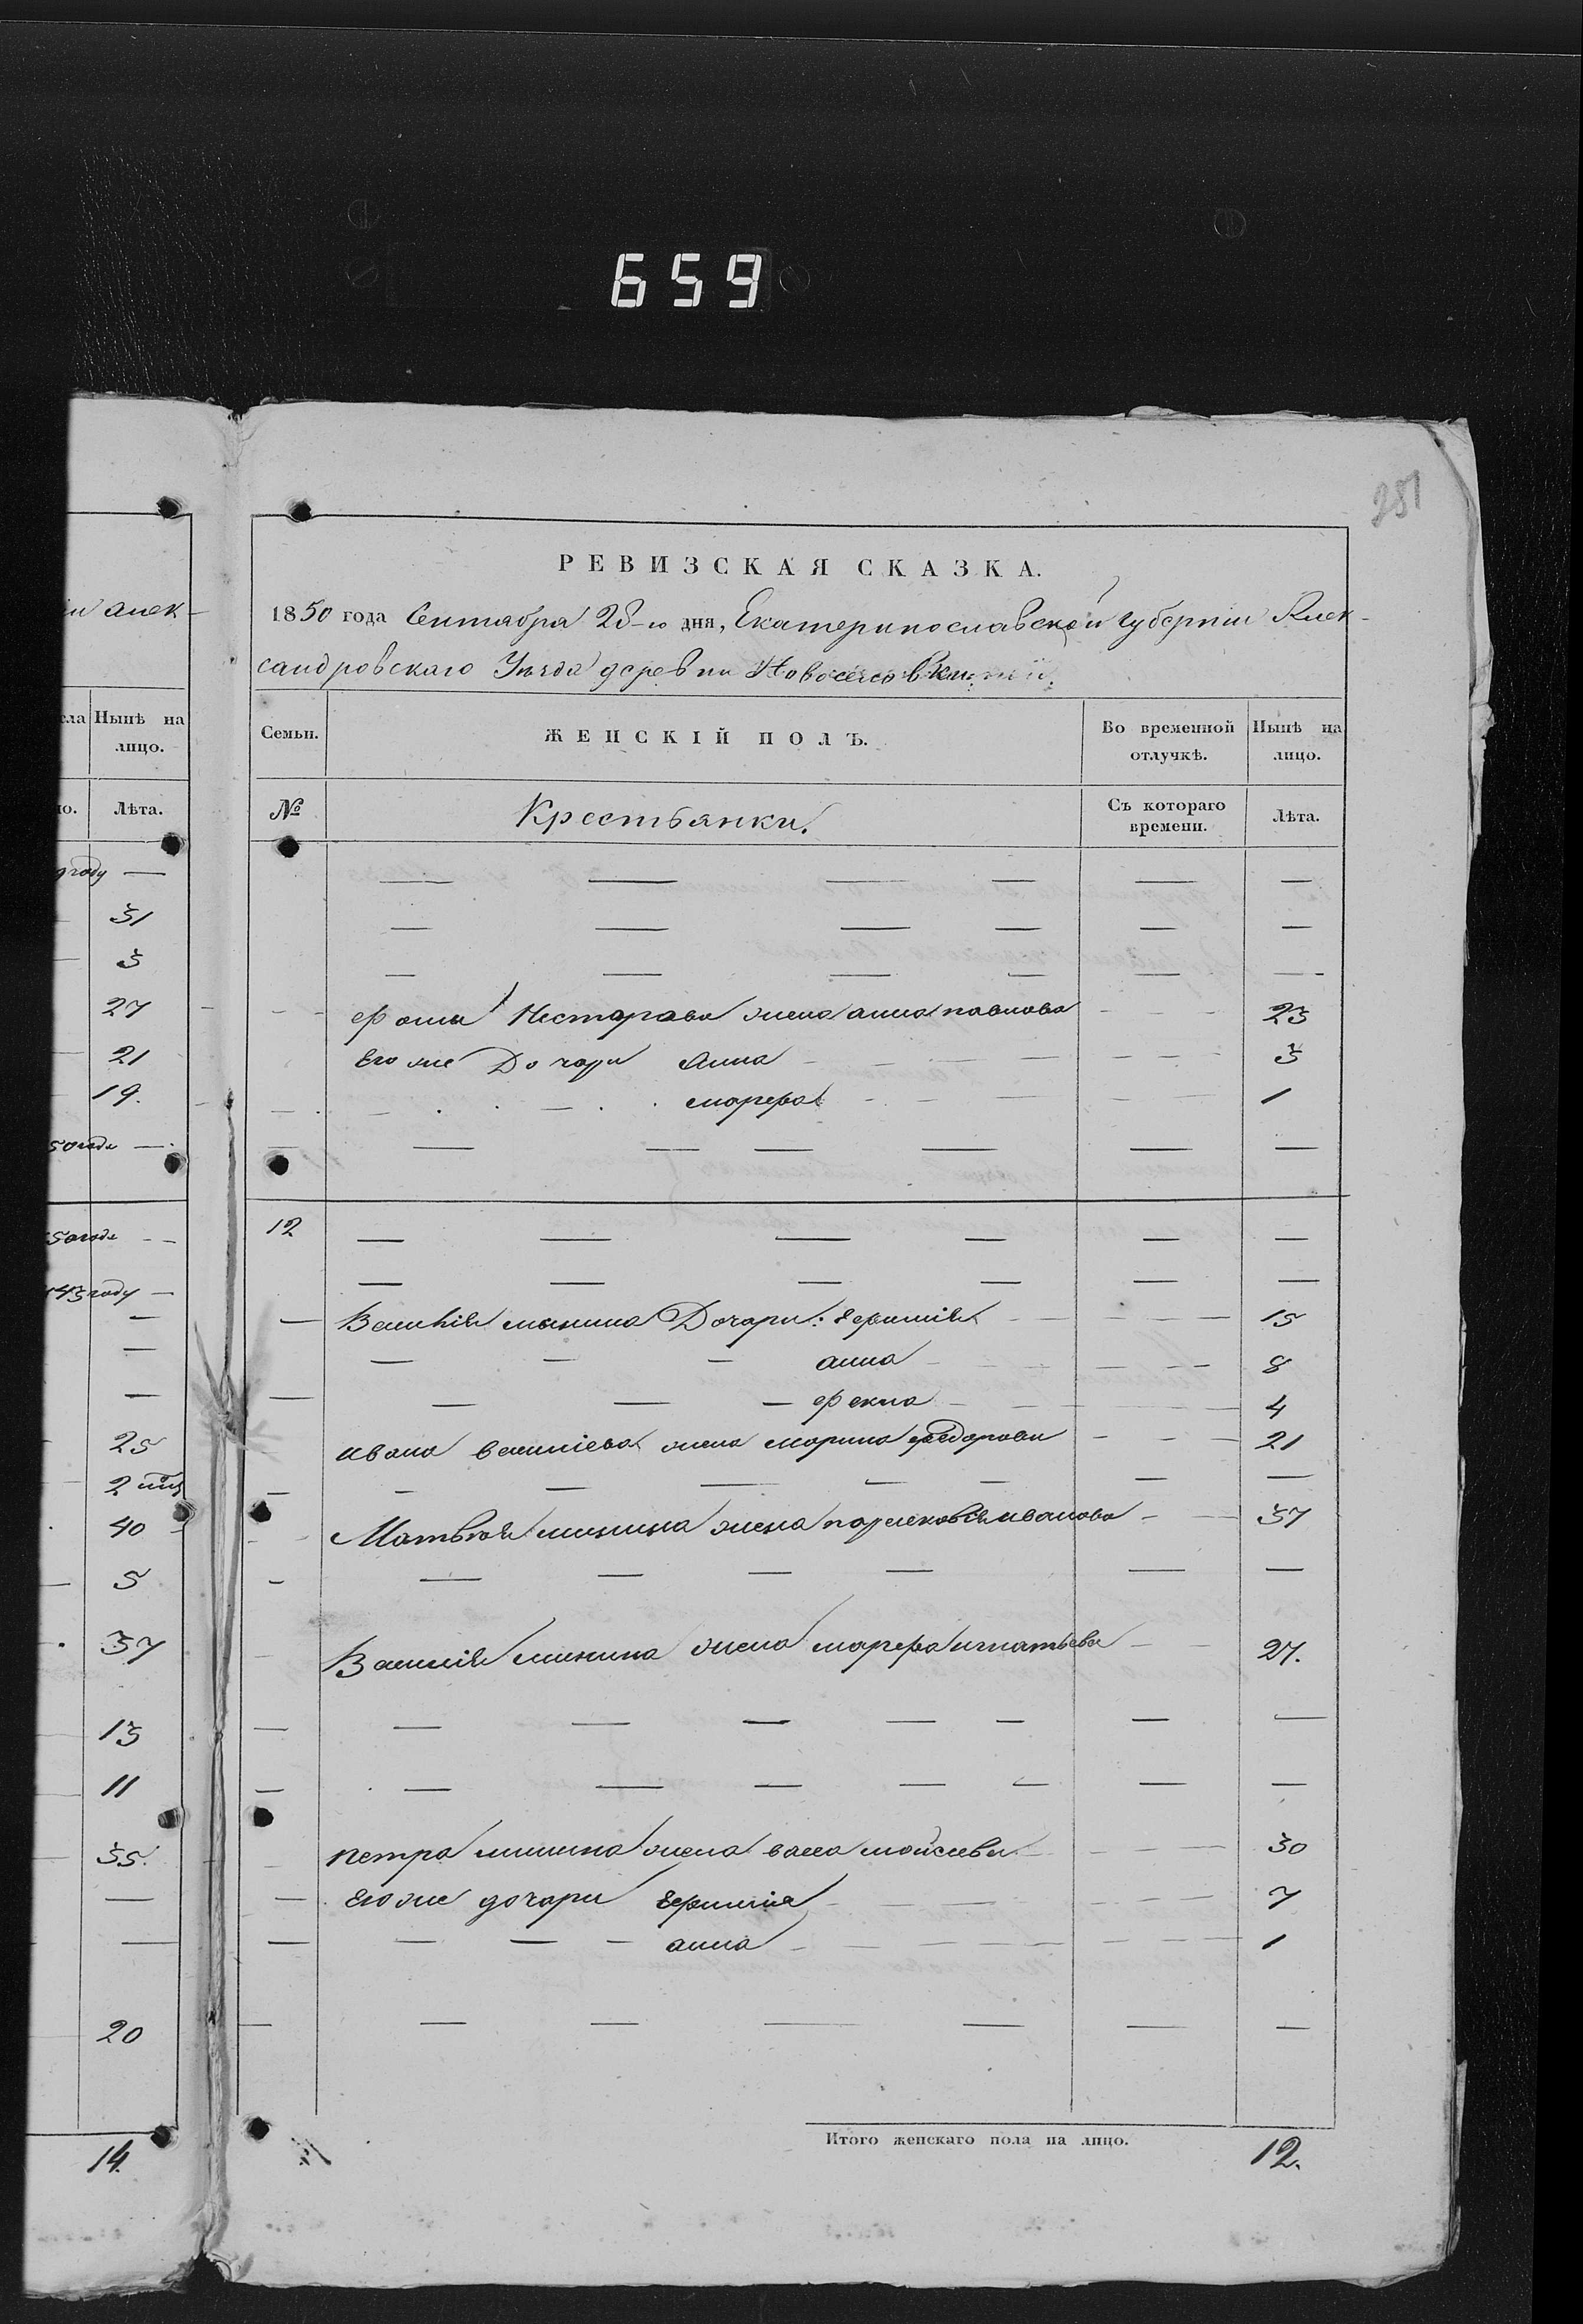 659
251
РЕВИЗСКАЯ СКАЗКА.
1850 года Сентября 28-го дня, Екатеринославской Губернии Алек-
сандровскаго Уезда деревни
Семьи.
ЖЕНСКІЙ ПОЛЪ.
Во временной отлучкѣ.
Нынѣ на лицо.
№
Крестьянки.
Съ котораго времени.
Лѣта.
Фомы Нестарава жена анна павлова 23
Его же Дочари Анна 3
марефа 1
12
Василия минина Дочари: Ефимия 15
анна 8
Фекла 4
ивана василиева жена марина федарова 21
Матвея минина жена парасковья иванова 37
Василия минина жена марефа игнатьева 27.
петра минина жена васа мойсиева 30
Его же дочари Ефимия 7
анна 1
Итого женскаго пола на лицо. 12.
алек-
Нынѣ на лицо.
Лѣта.
году
31
3
27
21
19.
50 года
50 года
43 году
25
2
40
5
37
13
11
35.
20
14.